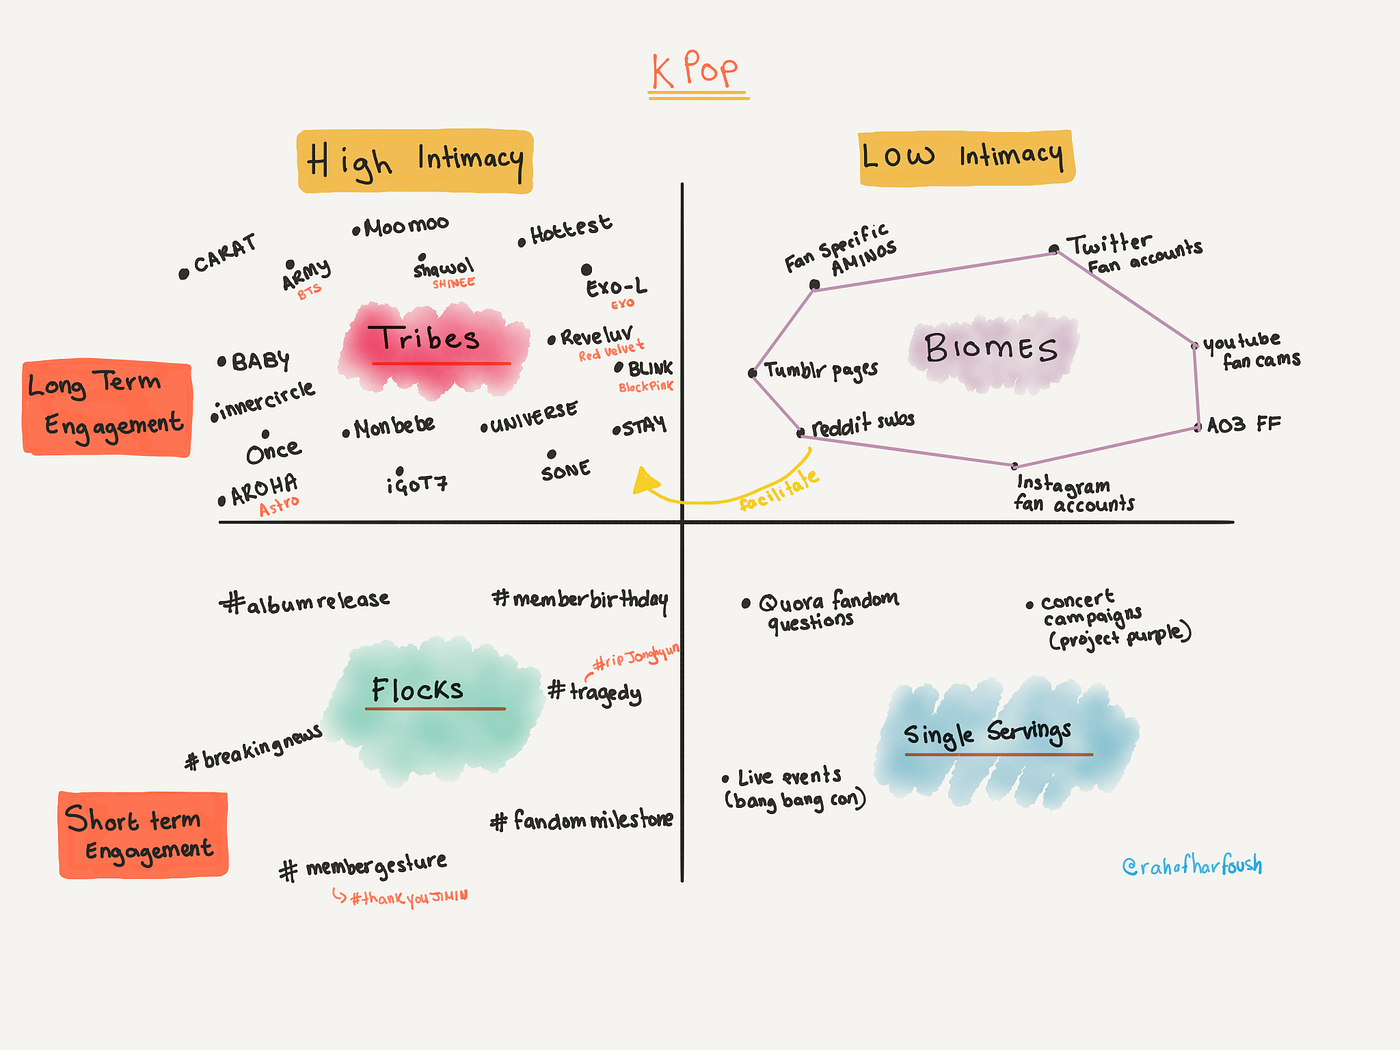 KPop
High Intimacy
Low Intimacy
Long Term
Engagement
Tribes
CARAT
Moomoo
Hottest
ARMY
BTS
Shawol
SHINEE
Exo-L
EXO
Reveluv
Red Velvet
BLINK
BlackPink
BABY
innercircle
Once
AROHA
Astro
Monbebe
iGOT7
UNIVERSE
SONE
STAY
BIOMES
Fan Specific
AMINOS
Twitter
Fan accounts
youtube
fan cams
AO3 FF
Instagram
fan accounts
reddit subs
Tumblr pages
facilitate
Short term
Engagement
Flocks
#albumrelease
#memberbirthday
#ripJonghyun
#tragedy
#breakingnews
#fandommilestone
#membergesture
#thankyouJIMIN
Single Servings
Quora fandom
questions
concert
campaigns
(project purple)
Live events
(bang bang con)
@rahafharfoush